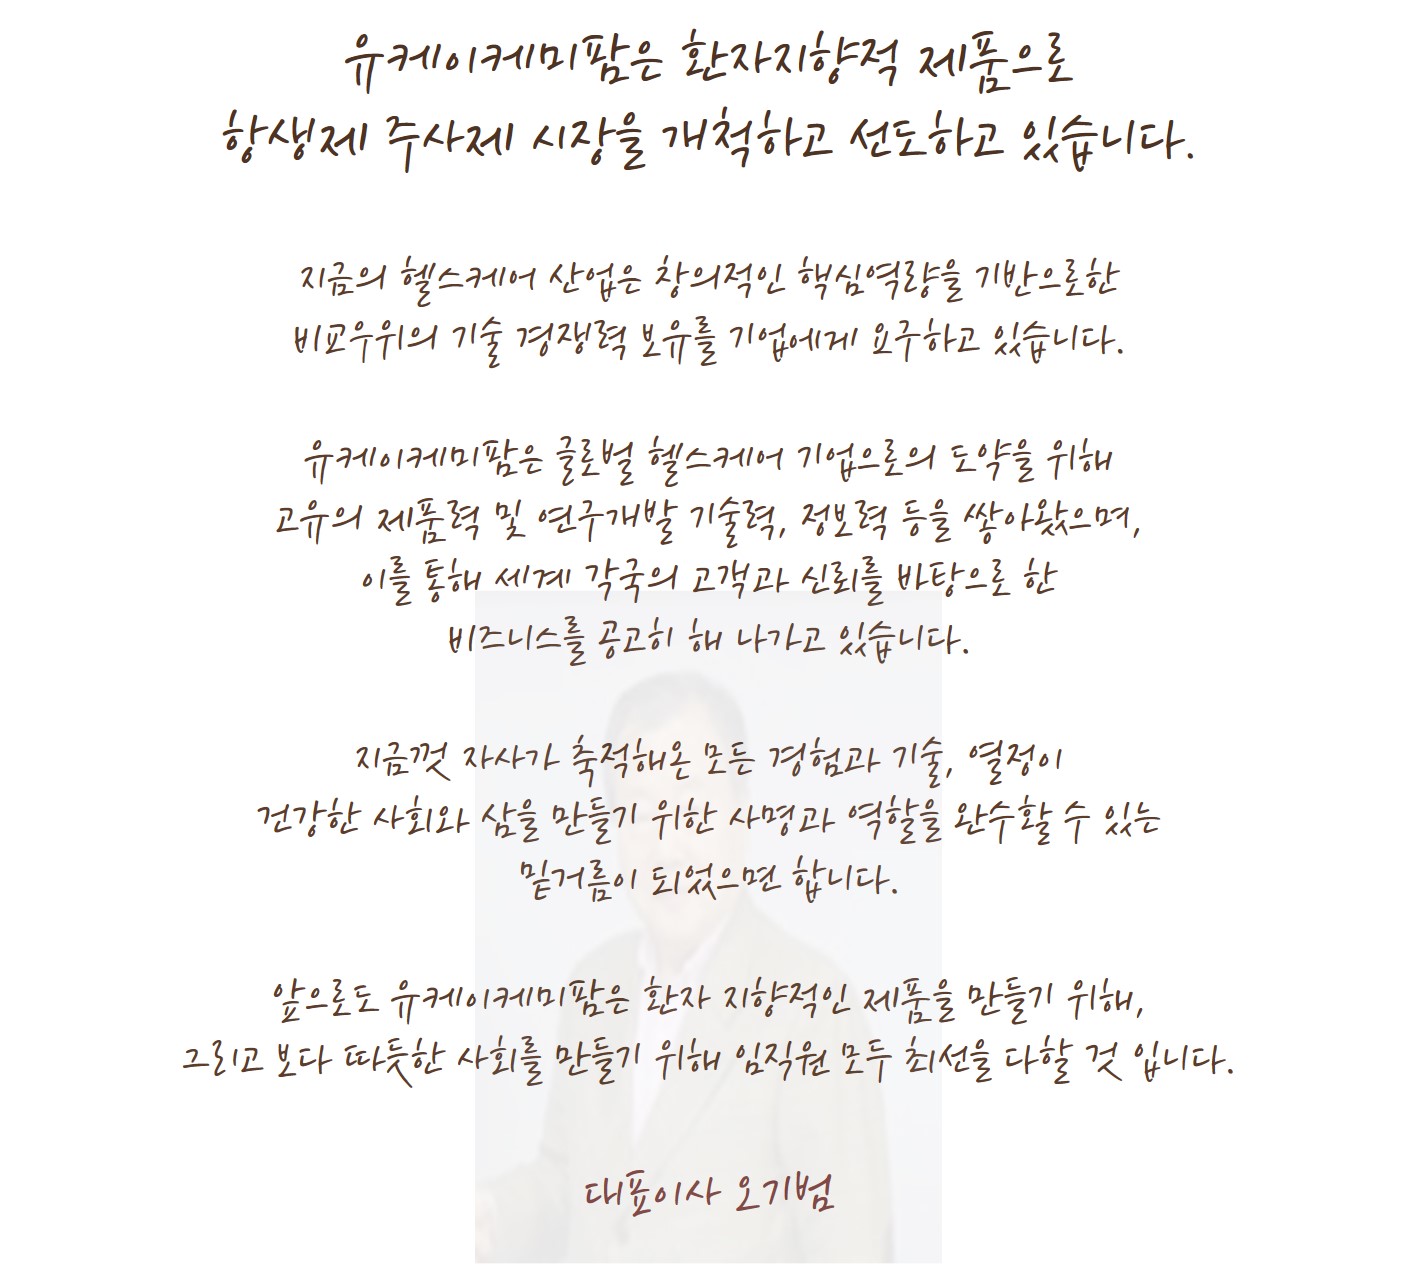 유케이케미팜은 환자지향적 제품으로
항생제 주사제 시장을 개척하고 선도하고 있습니다.
지금의 헬스케어 산업은 창의적인 핵심역량을 기반으로한
비교우위의 기술 경쟁력 보유를 기업에게 요구하고 있습니다.
유케이케미팜은 글로벌 헬스케어 기업으로의 도약을 위해
고유의 제품력 및 연구개발 기술력, 정보력 등을 쌓아왔으며,
이를 통해 세계 각국의 고객과 신뢰를 바탕으로 한
비즈니스를 공고히 해 나가고 있습니다.
지금껏 자사가 축적해온 모든 경험과 기술, 열정이
건강한 사회와 삶을 만들기 위한 사명과 역할을 완수할 수 있는
밑거름이 되었으면 합니다.
앞으로도 유케이케미팜은 환자 지향적인 제품을 만들기 위해,
그리고 보다 따듯한 사회를 만들기 위해 임직원 모두 최선을 다할 것 입니다.
대표이사 오기범